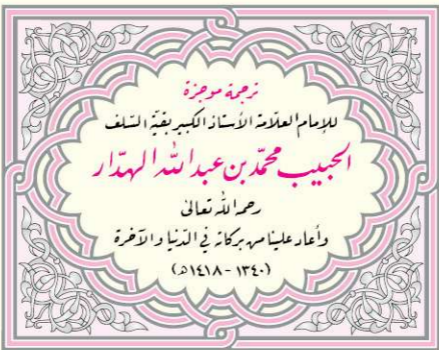 ترجمة موجزة
للإمام العلّامة الأستاذ الكبير بقيّة السلف
الحبيب محمّد بن عبد الله الهدّار
رحمه الله تعالى
وأعاد علينا من بركاته في الدّنيا والآخرة
(١٣٤٠ - ١٤١٨ه)